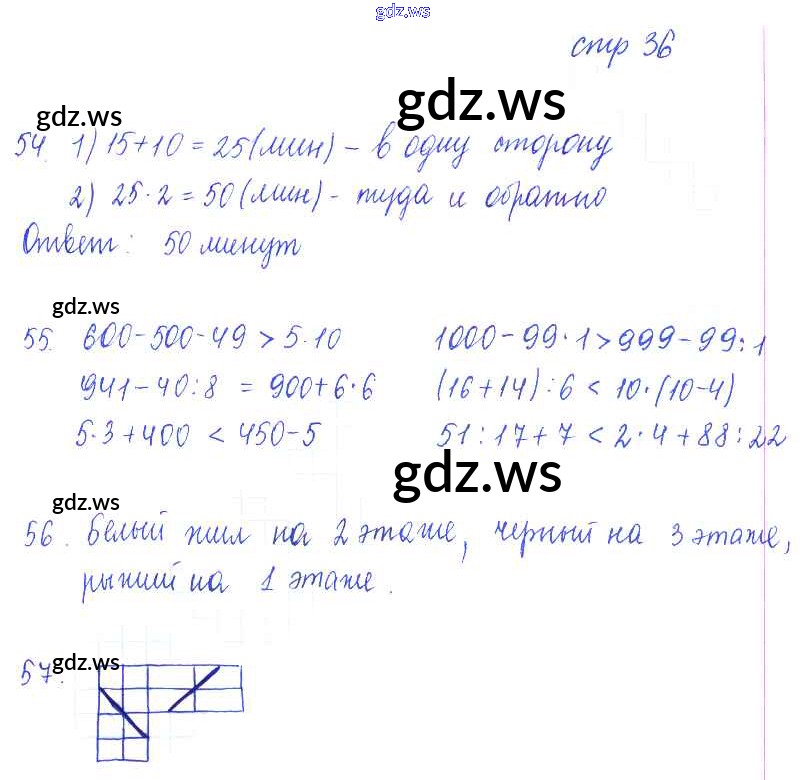 gdz.ws
стр 36
gdz.ws
gdz.ws
54. 1) 15+10 = 25 (мин) - в одну сторону
2) 25·2 = 50 (мин) - туда и обратно
Ответ: 50 минут
gdz.ws
55. 600-500-49 > 5·10 1000-99·1 > 999-99:1
941-40:8 = 900+6·6 (16+14):6 < 10·(10-4)
5·3+400 < 450-5 51:17+7 < 2·4+88:22
gdz.ws
gdz.ws
56. Белый жил на 2 этаже, черный на 3 этаже,
рыжий на 1 этаже.
gdz.ws
57.